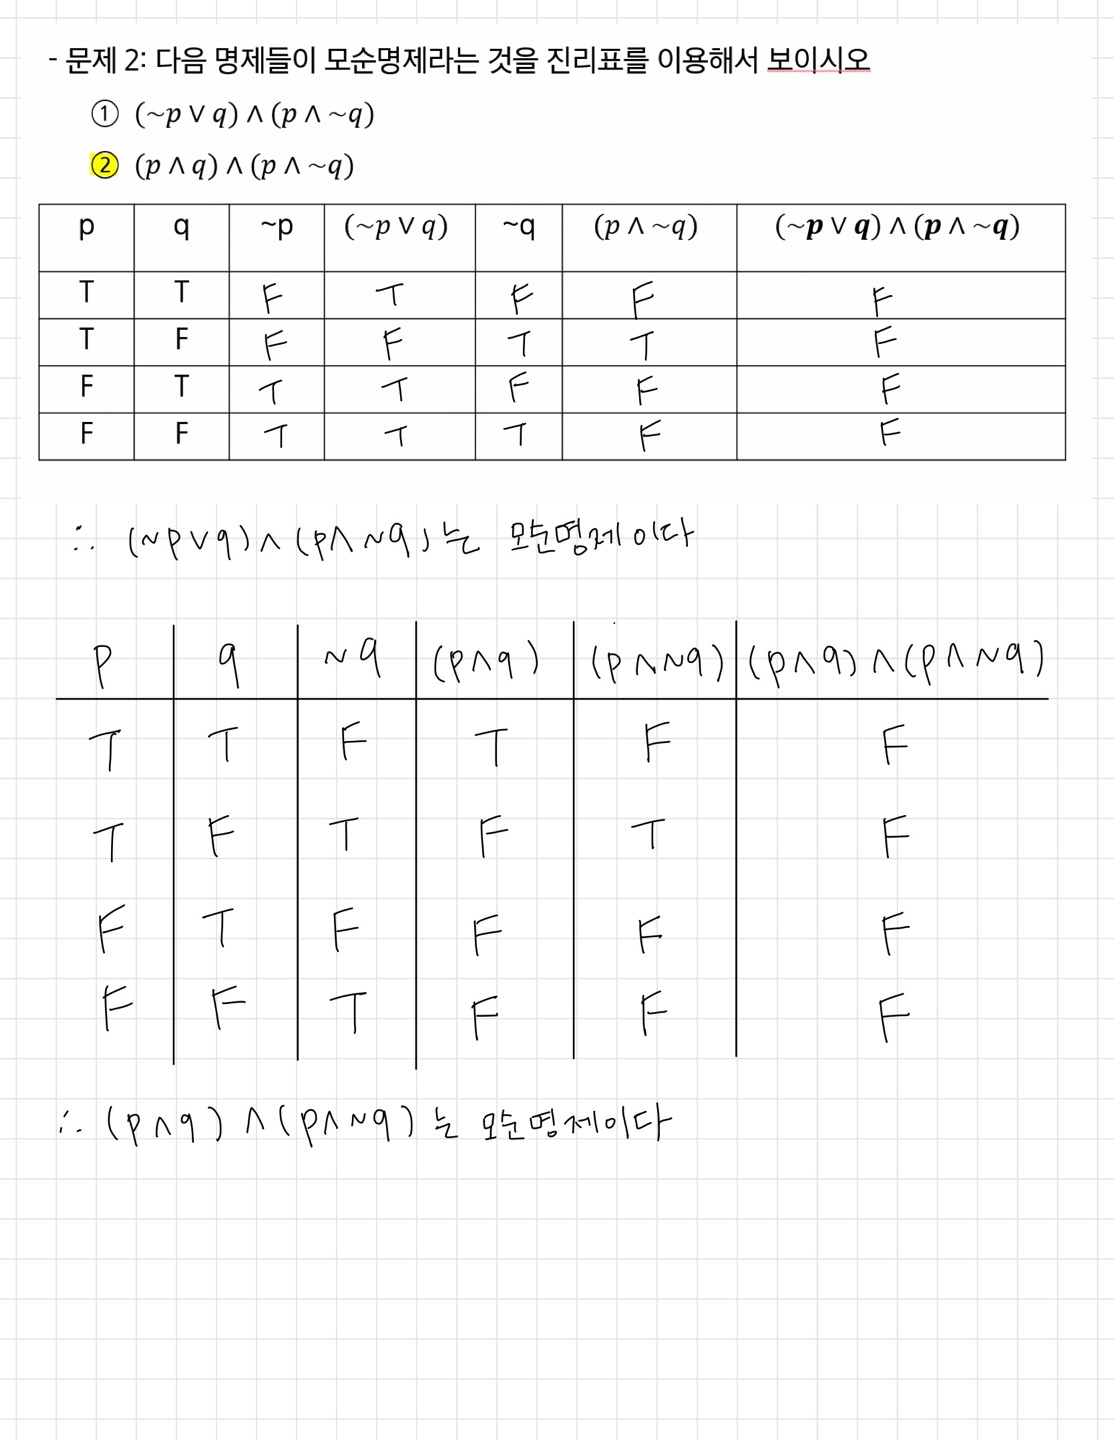 - 문제 2: 다음 명제들이 모순명제라는 것을 진리표를 이용해서 보이시오
① (~p ∨ q) ∧ (p ∧ ~q)
② (p ∧ q) ∧ (p ∧ ~q)
p q ~p (~p ∨ q) ~q (p ∧ ~q) (~p ∨ q) ∧ (p ∧ ~q)
T T F T F F F
T F F F T T F
F T T T F F F
F F T T T F F
∴ (~p∨q)∧(p∧~q)는 모순명제이다
p q ~q (p∧q) (p∧~q) (p∧q)∧(p∧~q)
T T F T F F
T F T F T F
F T F F F F
F F T F F F
∴ (p∧q)∧(p∧~q)는 모순명제이다